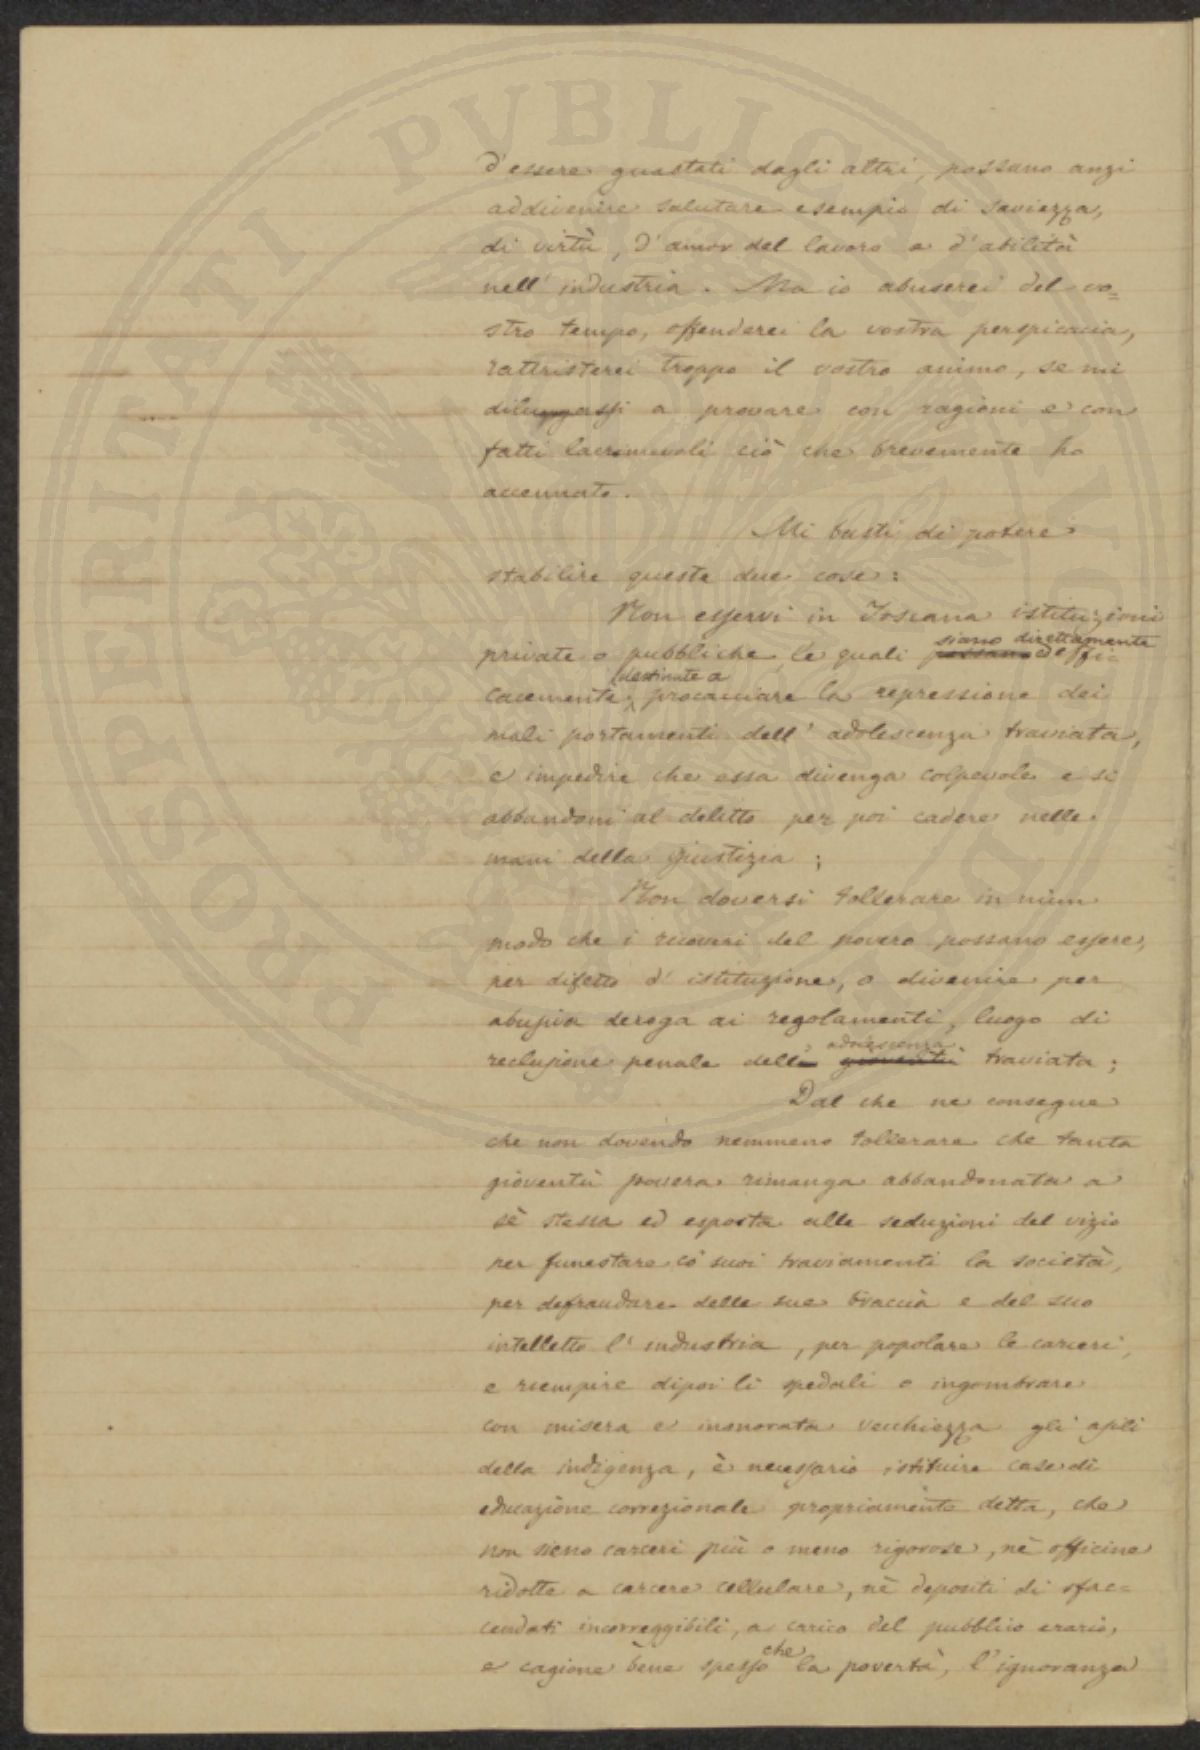 d'essere guastati dagli altri, possano anzi
addivenire salutare esempio di saviezza,
di virtù, d'amor del lavoro e d'abilità
nell'industria. Ma io abuserei del vo=
stro tempo, offenderei la vostra perspicacia,
rattristerei troppo il vostro animo, se mi
dilungassi a provare con ragioni e con
fatti lacrimevoli ciò che brevemente ho
accennato.
Mi basti di potere
stabilire queste due cose:
Non esservi in Toscana istituzioni
siano direttamente
private o pubbliche, le quali possano ed effi-
destinate a
cacemente procacciare la repressione dei
mali portamenti dell'adolescenza traviata,
e impedire che essa divenga colpevole e si
abbandoni al delitto per poi cadere nelle
mani della giustizia;
Non doversi tollerare in niun
modo che i ricoveri del povero possano essere,
per difetto d'istituzione, o divenire per
abusiva deroga ai regolamenti, luogo di
adolescenza
reclusione penale dell' gioventù traviata;
Dal che ne consegue
che non dovendo nemmeno tollerare che tanta
gioventù povera rimanga abbandonata a
sè stessa ed esposta alle seduzioni del vizio
per funestare co' suoi traviamenti la società,
per defraudare delle sue braccia e del suo
intelletto l'industria, per popolare le carceri,
e riempire dipoi li spedali o ingombrare
con misera e inonorata vecchiezza gli asili
della indigenza, è necessario istituire case di
educazione correzionale propriamente detta, che
non sieno carceri più o meno rigorose, nè officine
ridotte a carcere cellulare, nè depositi di sfac=
cendati incorreggibili, a carico del pubblico erario,
che
e cagione bene spesso la povertà, l'ignoranza
PROSPERITATI PVBLICAE